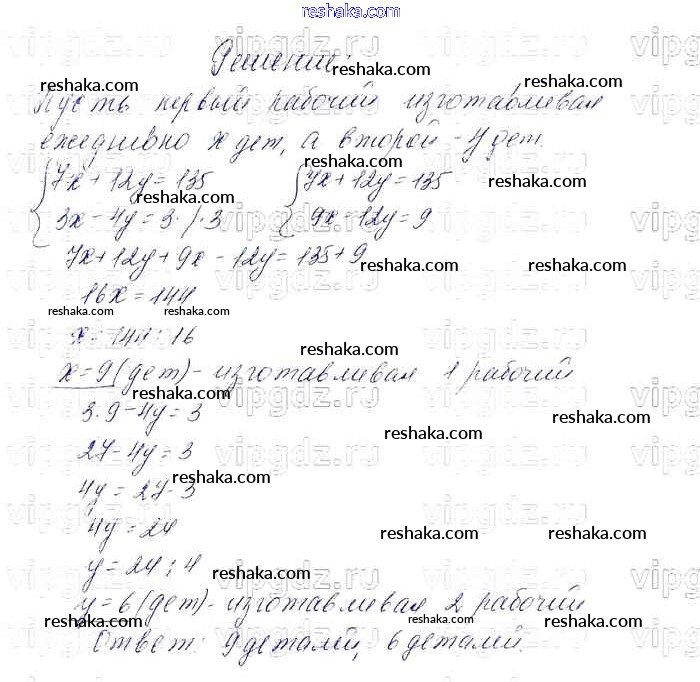 reshaka.com
Решение:
Пусть первый рабочий изготавливал
ежедневно x дет, а второй - y дет.
7x + 12y = 135 7x + 12y = 135
3x - 4y = 3 /·3 9x - 12y = 9
7x + 12y + 9x - 12y = 135 + 9
16x = 144
x = 144 : 16
x = 9 (дет) - изготавливал 1 рабочий
3·9 - 4y = 3
27 - 4y = 3
4y = 27 - 3
4y = 24
y = 24 : 4
y = 6 (дет) - изготавливал 2 рабочий
Ответ: 9 деталей, 6 деталей.